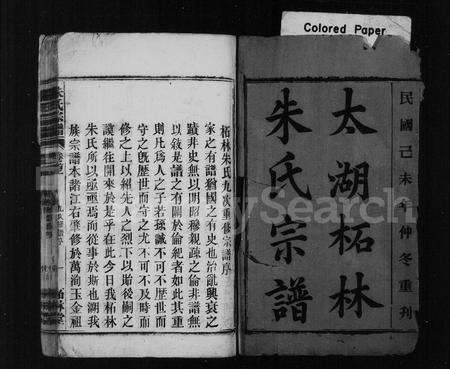 Colored Paper
民國己未年仲冬重刊
太湖柘林
朱氏宗譜
柘林朱氏九次重修宗譜序
家之有譜猶國之有史也治亂興衰之
蹟非史無以明昭穆親疎之倫非譜無
以敘是譜之有關於倫紀者如此其重
則凡為人之子若孫誠不可不歷世而
守之旣歷世而守之尤不可不及時而
修之上以紹先人之烈下以貽後嗣之
謨繼往開來於是乎在此今日我柘林
朱氏所以亟亟焉而從事於斯也溯我
族宗譜本諸江右肇修於萬洵玉金祖